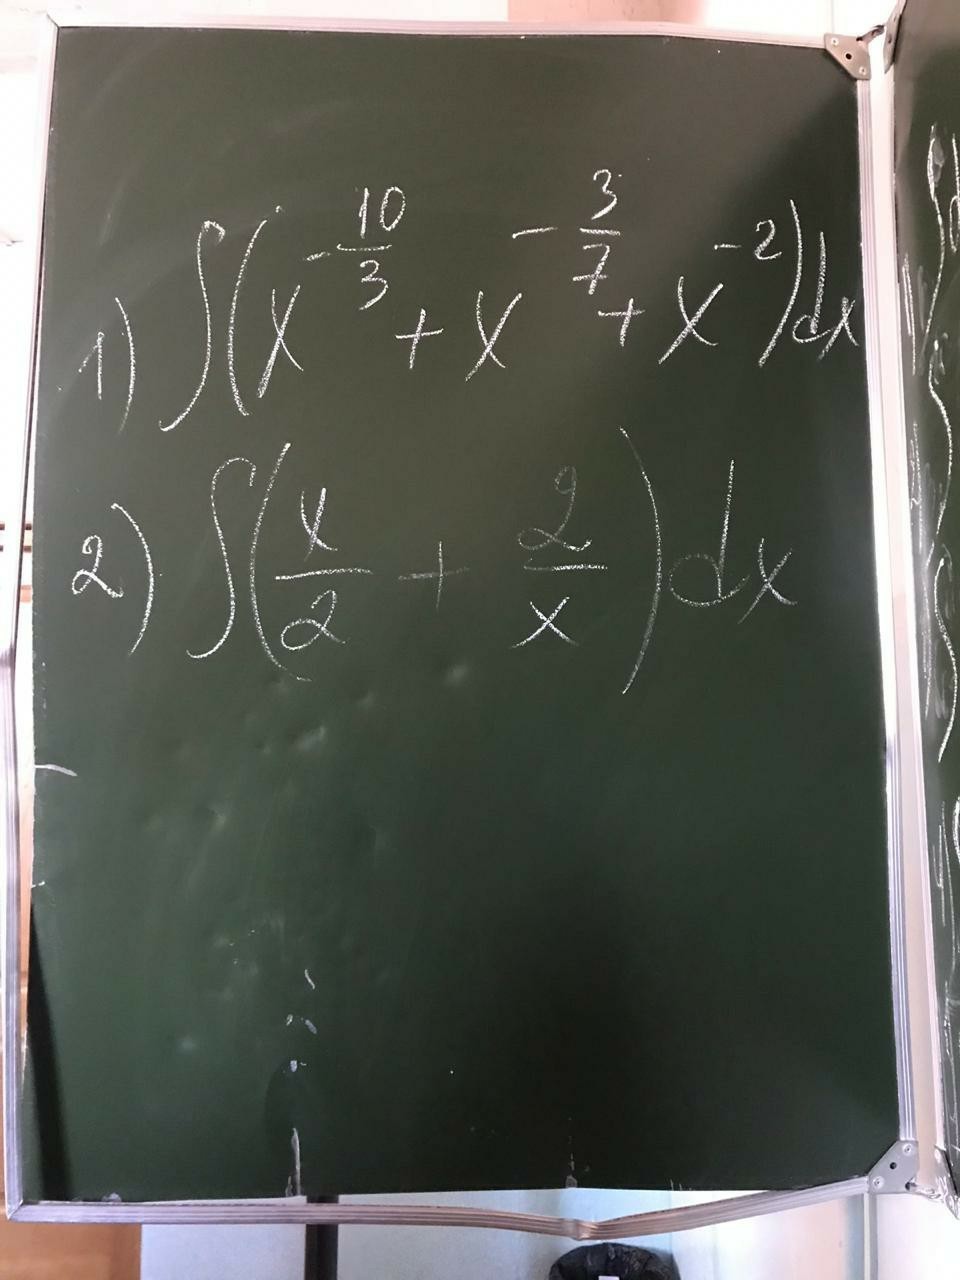 1) ∫(x^{-\frac{10}{3}} + x^{-\frac{3}{7}} + x^{-2})dx
2) ∫(\frac{x}{2} + \frac{2}{x})dx